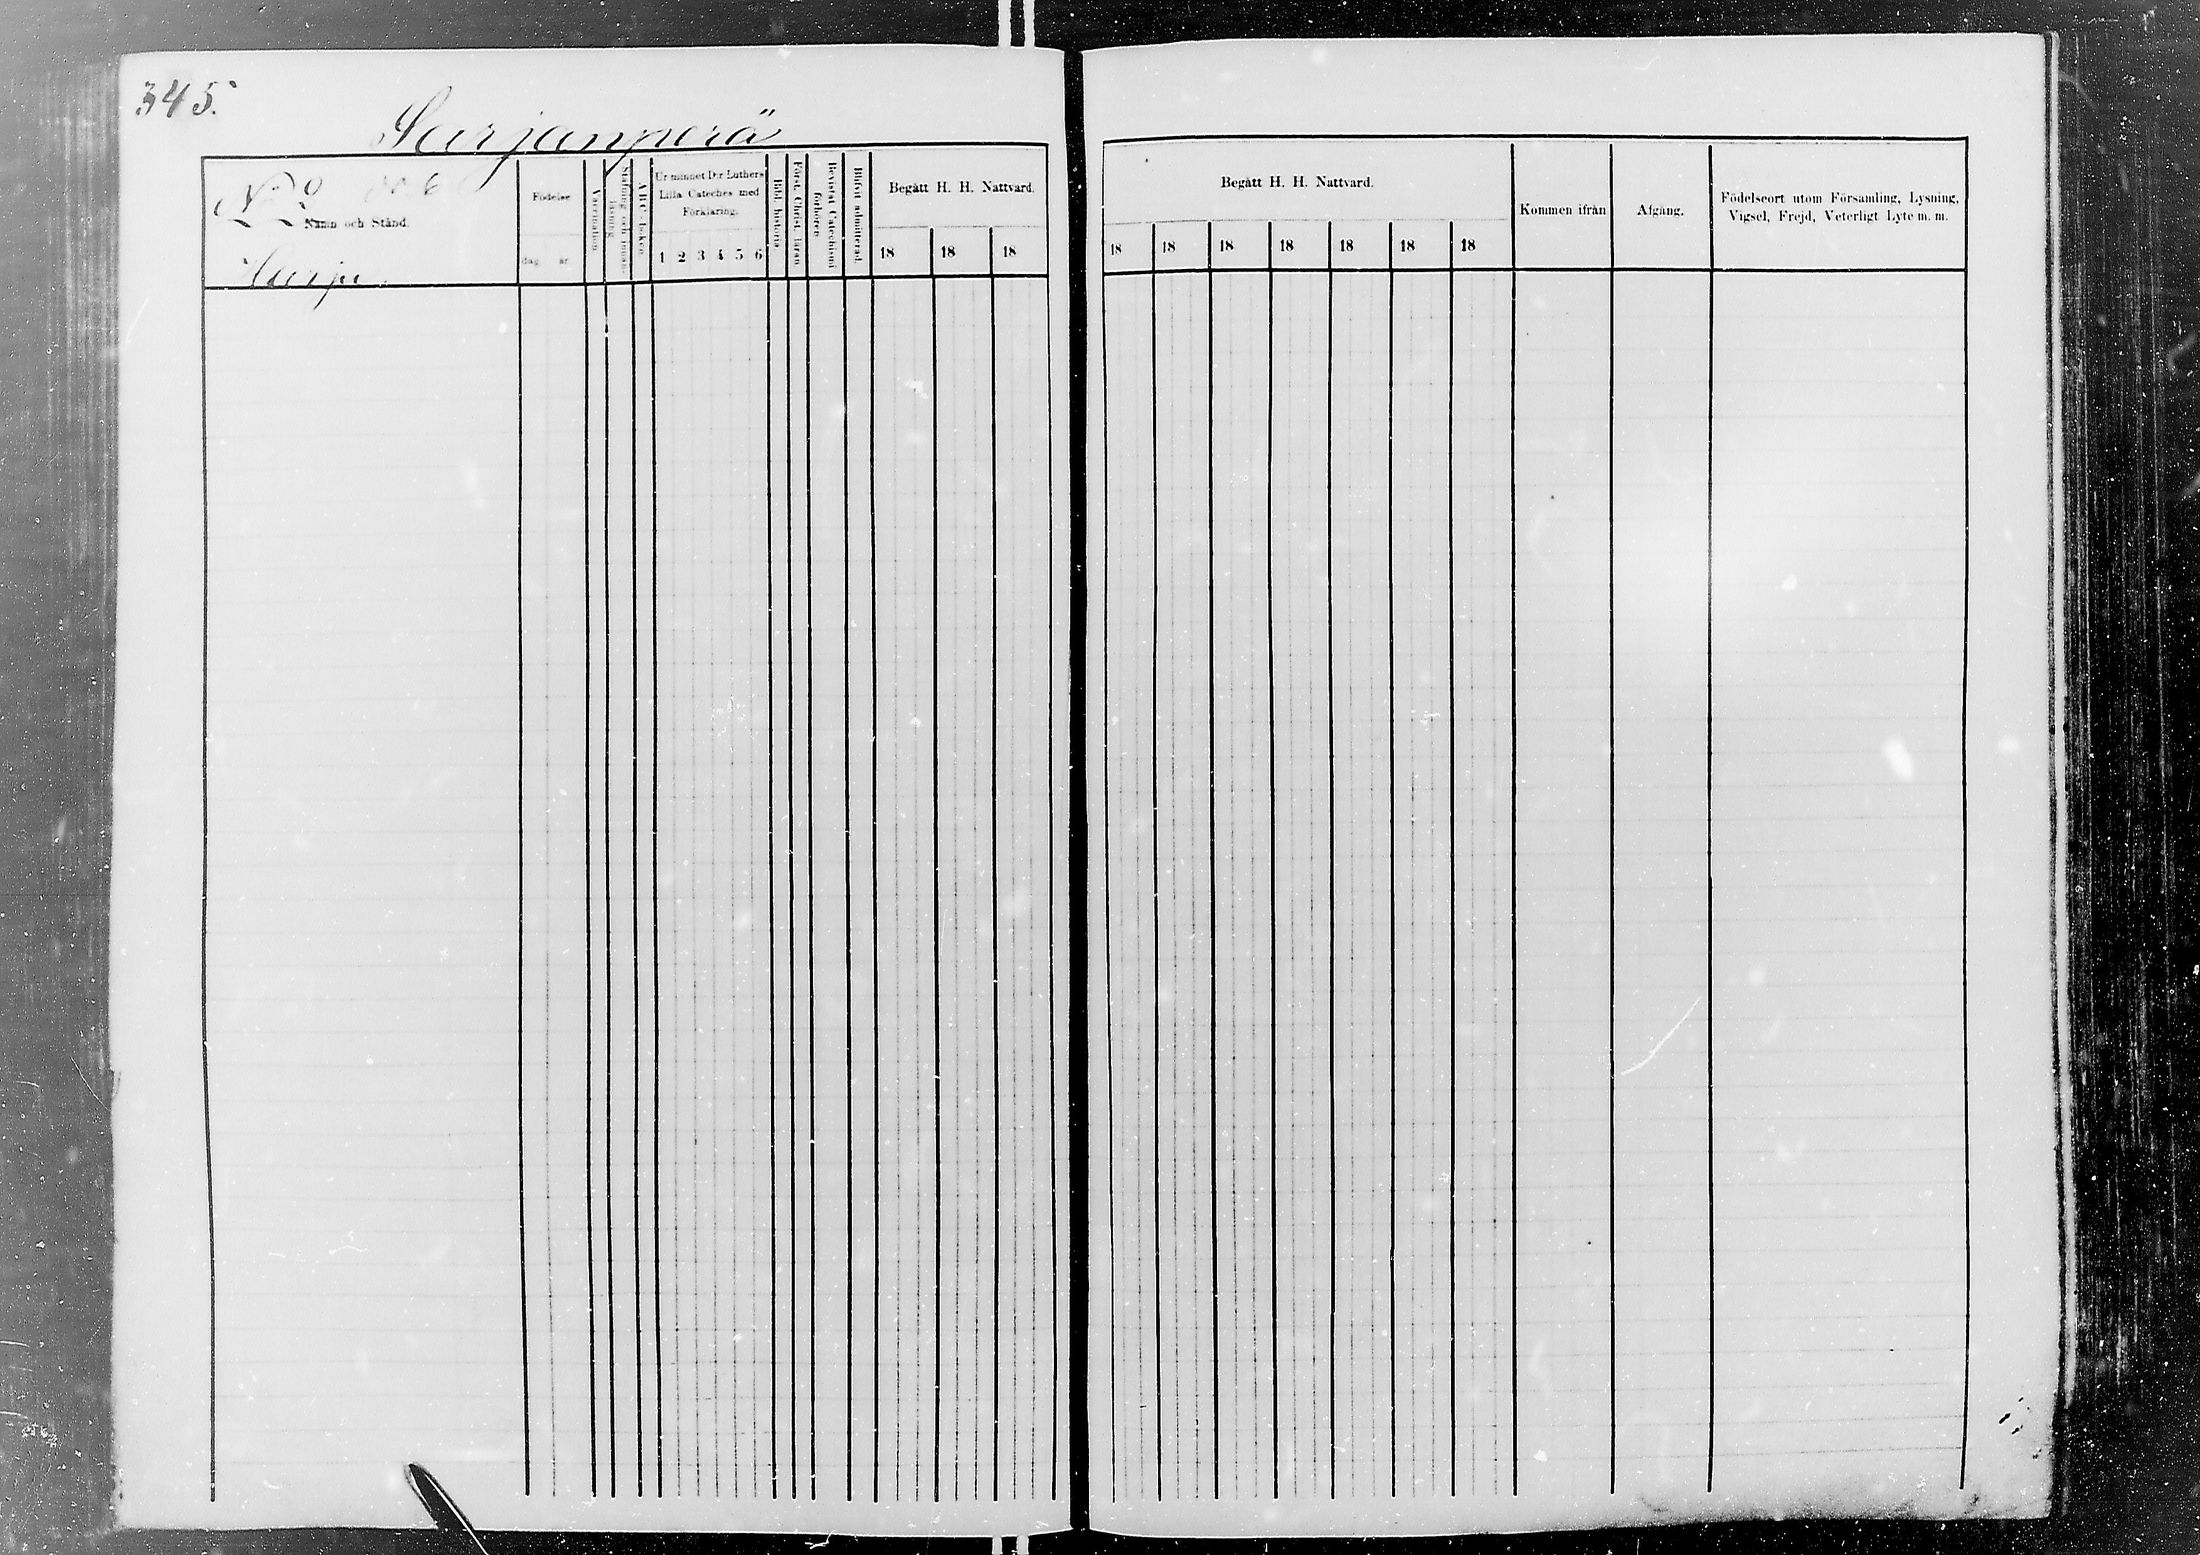 345.
Sarjanperä
No 6
Namn och Stånd.
Harju
Födelse
dag. år.
Vaccination
Stafning och innan-
läsning
ABC-boken
Ur minnet D:r Luthers
Lilla Cateches med
Förklaring.
1 2 3 4 5 6
Bibl. historia
Först. Christ. läran
Bevistat Catechismi
förhören
Blifvit admitterad.
Begått H. H. Nattvard.
18 18 18
Begått H. H. Nattvard.
18 18 18 18 18 18 18
Kommen ifrån
Afgång.
Födelseort utom Församling, Lysning,
Vigsel, Frejd, Veterligt Lyte m. m.